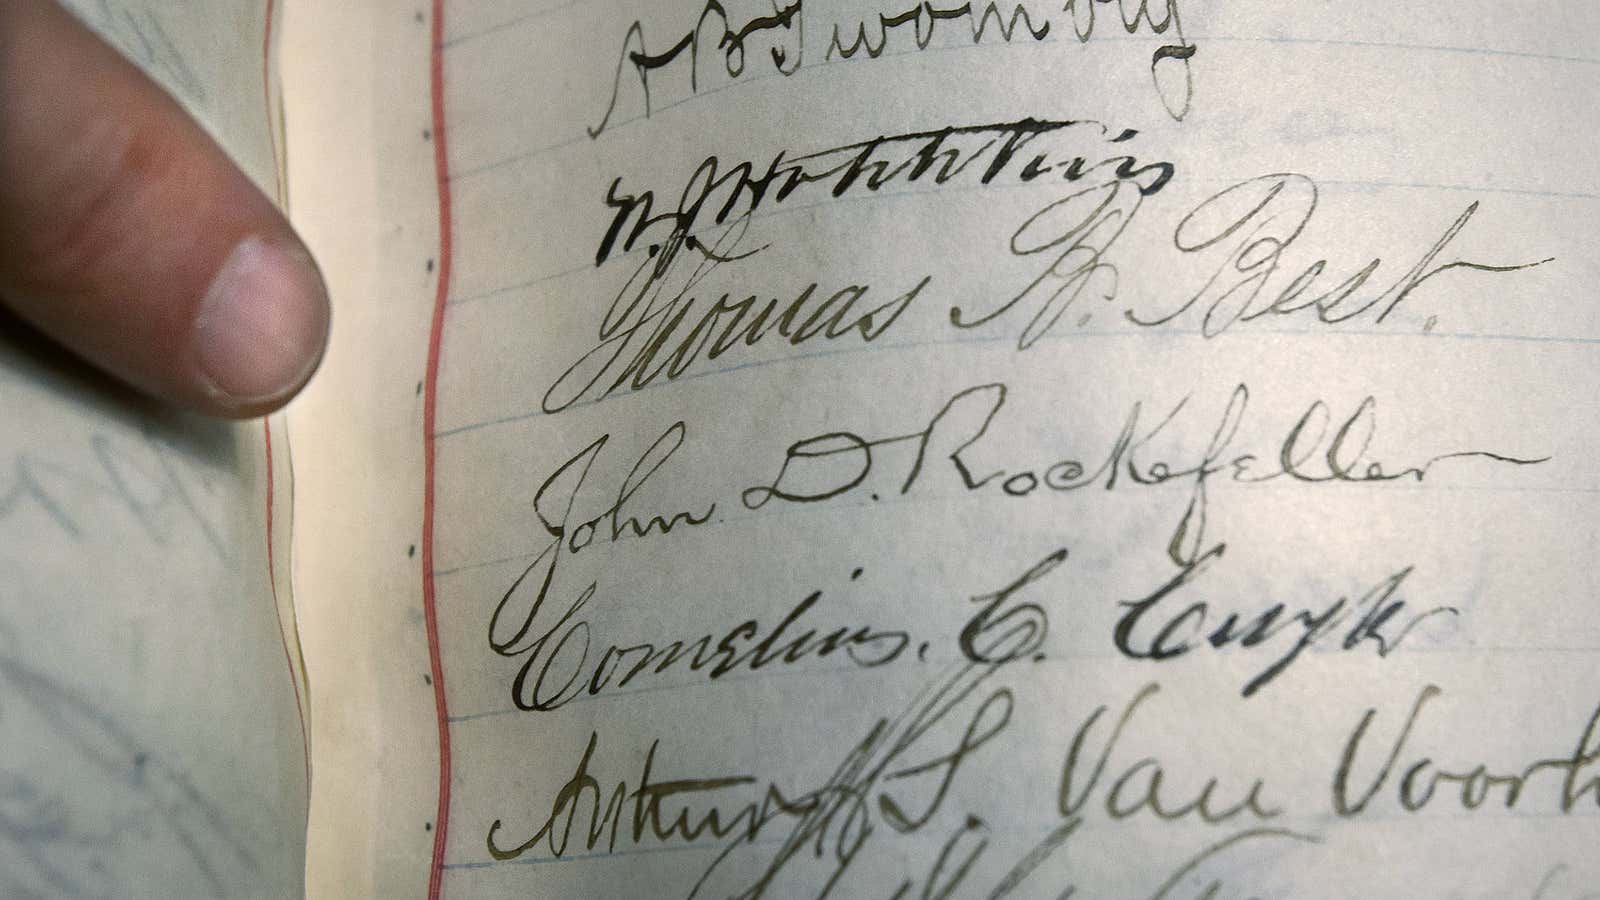 A B Twombly
W. J. Hotchkiss
Thomas B. Best.
John D. Rockefeller
Cornelius. C. Cuyk
Arthur S. Van Voorh